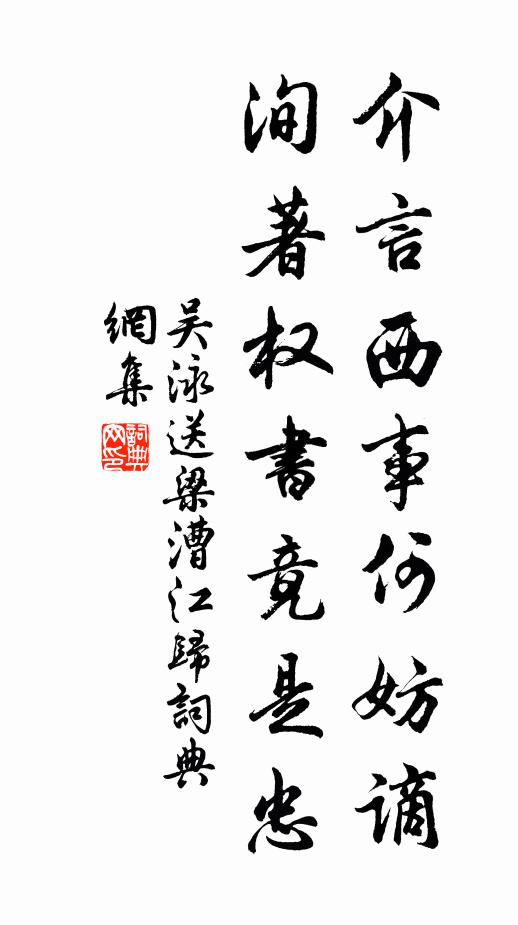 介言西事何妨謫
洵著权書竟是忠
吴泳送梁漕江歸詞典
網集
詞典网印